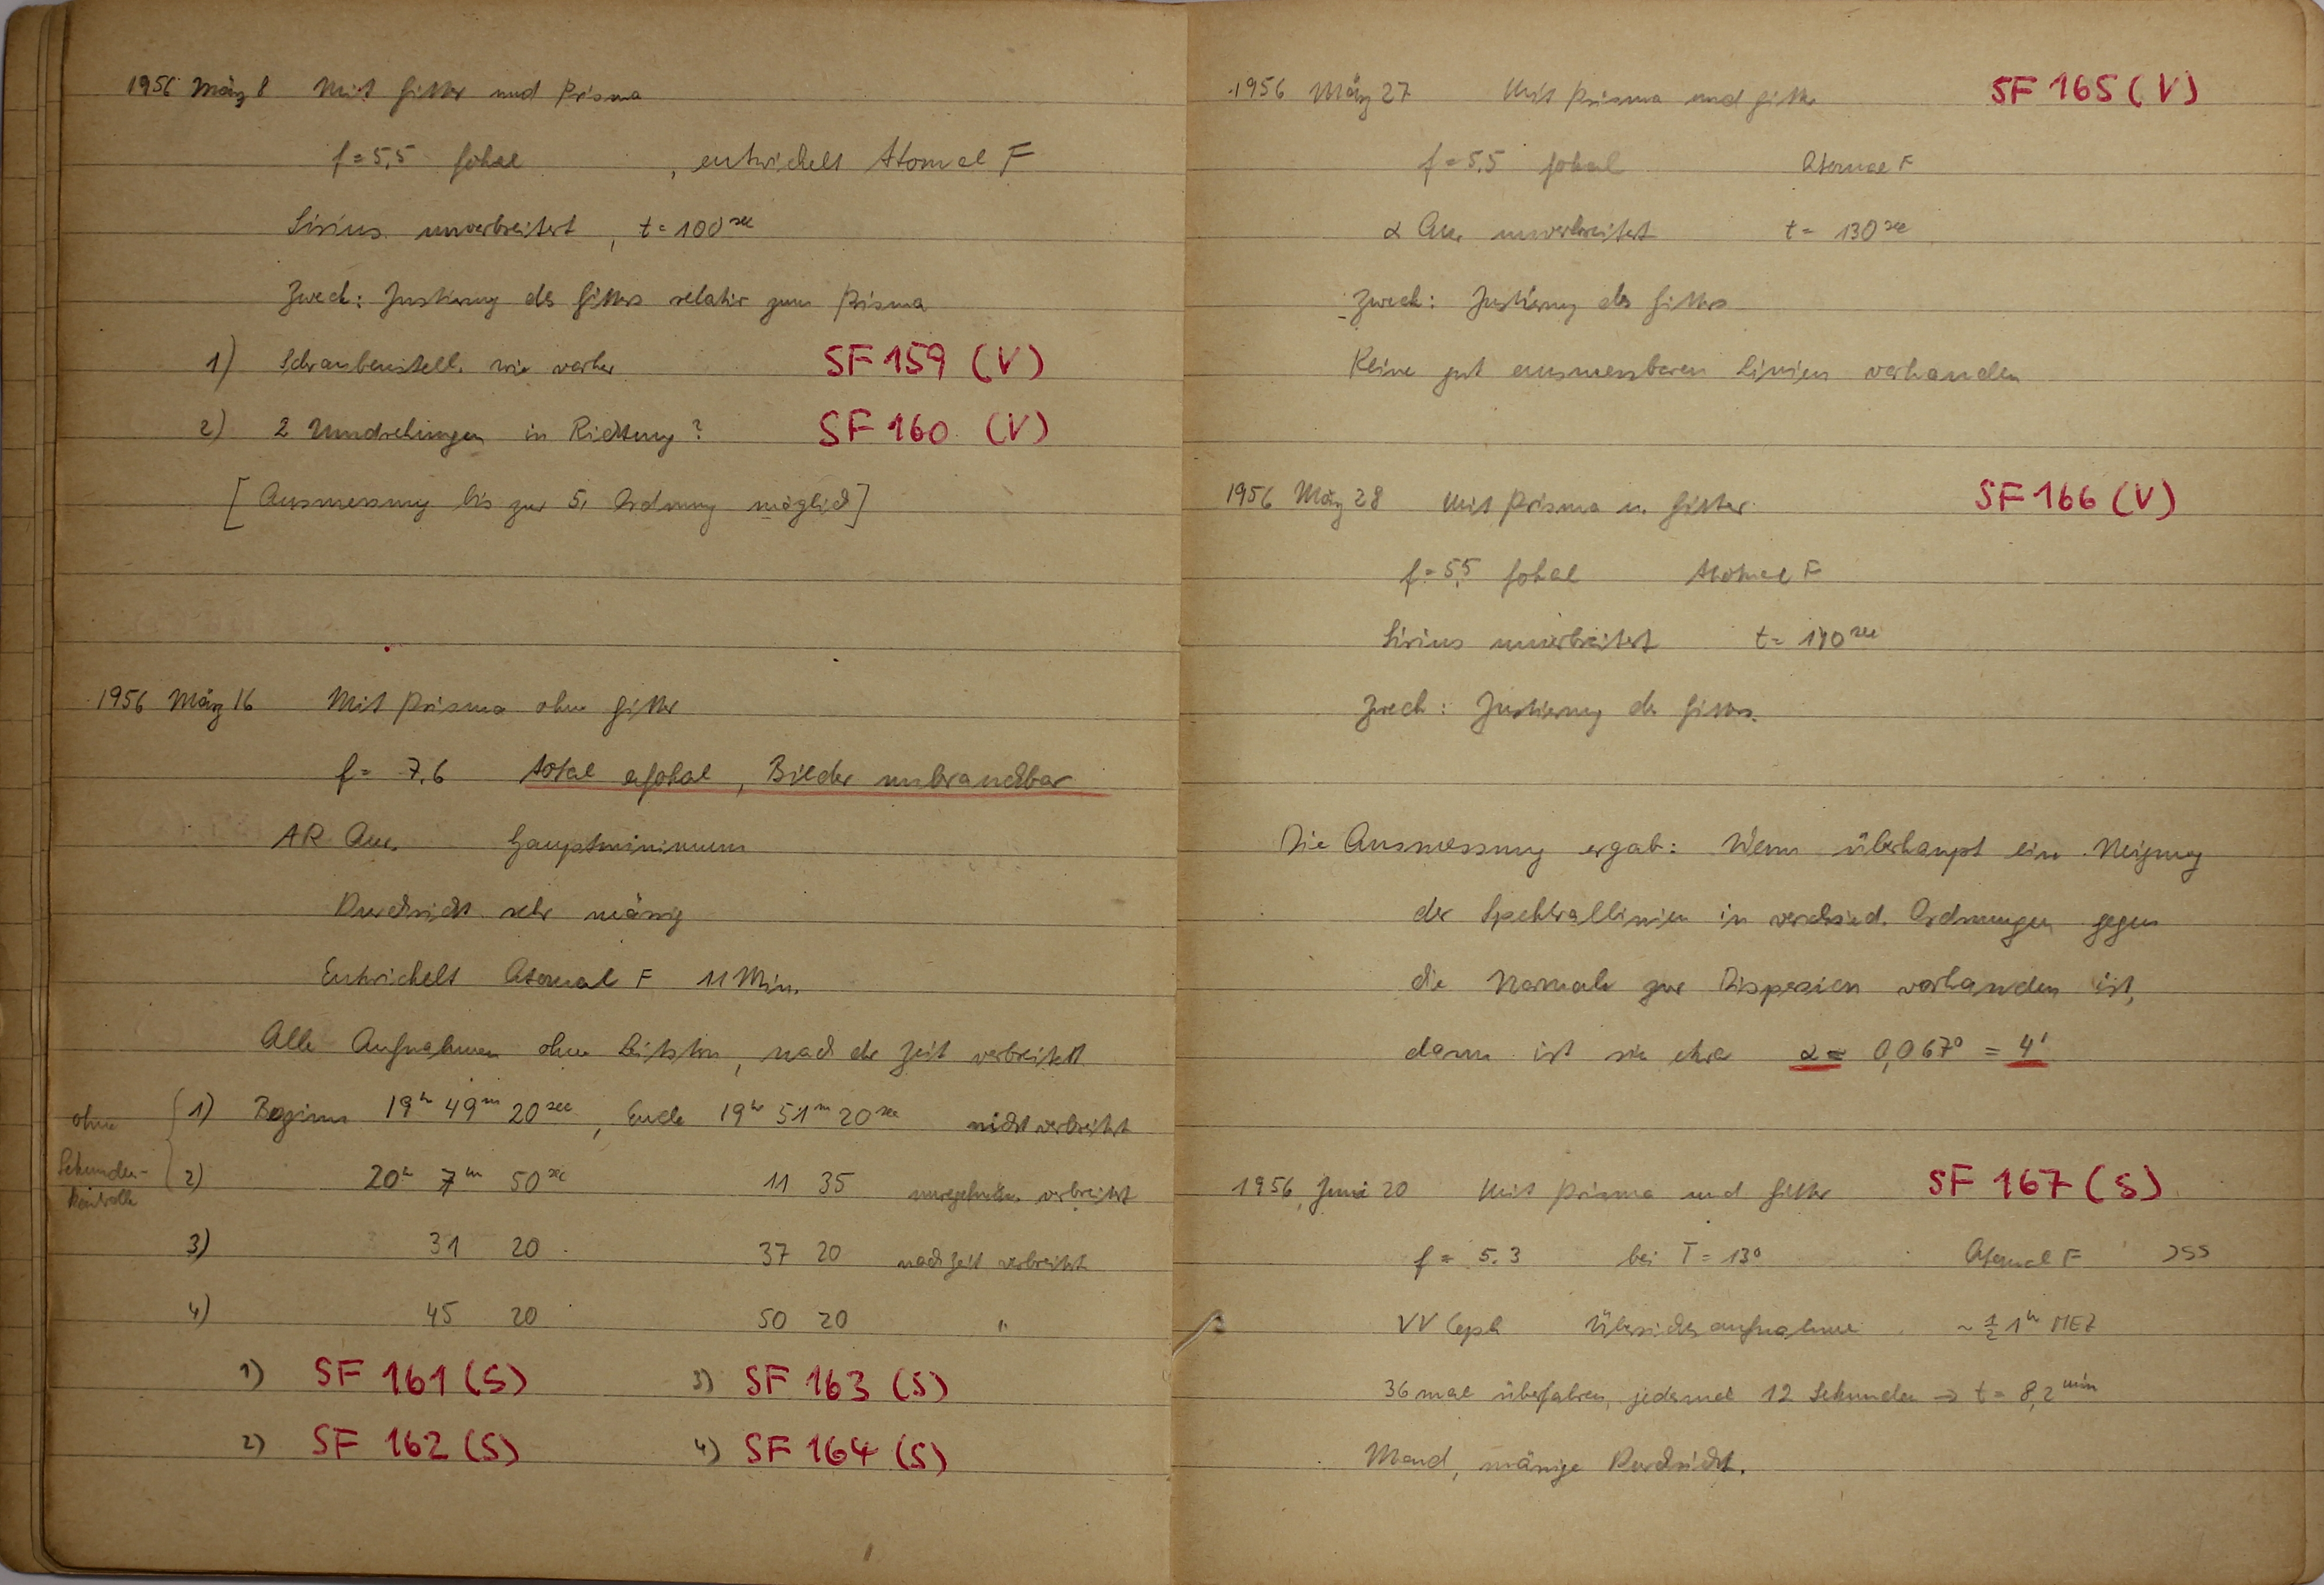 1956 März 8 Mit Gitter und Prisma
f = 5,5 fokal , entwickelt Atomal F
Sirius unverbreitert, t = 100 sec
Zweck: Justierung des Gitters relativ zum Prisma
1) Schraubenstell. wie vorher SF 159 (V)
2) 2 Umdrehungen in Richtung ? SF 160 (V)
[Ausmessung bis zur 5. Ordnung möglich]
1956 März 16 Mit Prisma ohne Gitter
f = 7.6 total afokal, Bilder unbrauchbar
AR Aur. Hauptminimum
Durchsicht sehr mässig
Entwickelt Atomal F 11 Min.
Alle Aufnahmen ohne Leitstern, nach der Zeit verbreitert
ohne Sekunden-kontrolle
1) Beginn 19h 49m 20sec, Ende 19h 51m 20sec nicht verbreitert
2) 20h 7m 50sec 11 35 verbreitert
3) 31 20 37 20 nach Zeit verbreitert
4) 45 20 50 20 "
1) SF 161 (S) 3) SF 163 (S)
2) SF 162 (S) 4) SF 164 (S)
1956 März 27 Mit Prisma und Gitter SF 165 (V)
f = 5,5 fokal Atomal F
α Aur unverbreitert t = 130 sec
Zweck: Justierung des Gitters
Keine gut ausmessbaren Linien vorhanden
1956 März 28 Mit Prisma u. Gitter SF 166 (V)
f = 5,5 fokal Atomal F
Sirius unverbreitert t = 190 sec
Zweck: Justierung des Gitters.
Die Ausmessung ergab: Wenn überhaupt eine Neigung
der Spektrallinien in verschied. Ordnungen gegen
die Normale zur Dispersion vorhanden ist,
dann ist sie etwa α = 0,067° = 4'
1956, Juni 20 Mit Prisma und Gitter SF 167 (S)
f = 5.3 bei T = 13° Atomal F
VV Ceph Übersichtsaufnahme ~ ½ 1h MEZ
36 mal überfahren, jedesmal 12 Sekunden → t = 8,2 min
Mond, mässige Durchsicht.